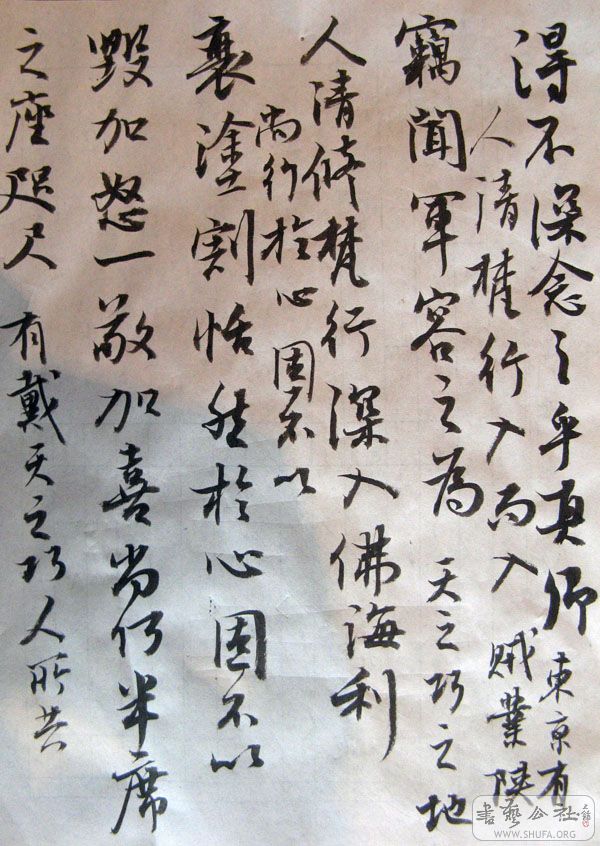 得不深念之乎真卿東京有
人清梵行入而入賊業陝
竊聞軍容之為天之功之地
人清修梵行深入佛海利
尚行於心固不以
衰塗割恬然於心固不以
毀加怒一敬加喜尚何半席
之座咫尺有戴天之功人所共
書藝公社
WWW.SHUFA.ORG